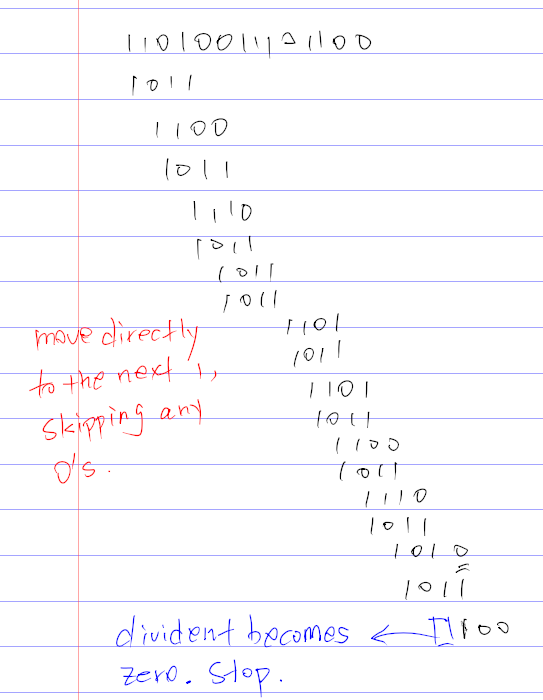 11010011101100
1011
1100
1011
1110
1011
1011
1011
1101
1011
1101
1011
1100
1011
1110
1011
1010
1011
100
move directly
to the next 1,
skipping any
0's.
divident becomes
zero. Stop.